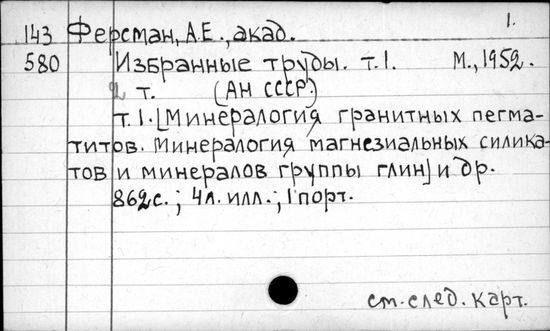 1.
143 Ферсман, А.Е., акад.
580 Избранные труды. т.1. М., 1952.
2 т. (АН СССР.)
т.1. [Минералогия гранитных пегма-
титов. Минералогия магнезиальных силика-
тов и минералов группы глин] и др.
862с.; 4л. илл.; 1 порт.
см. след. карт.